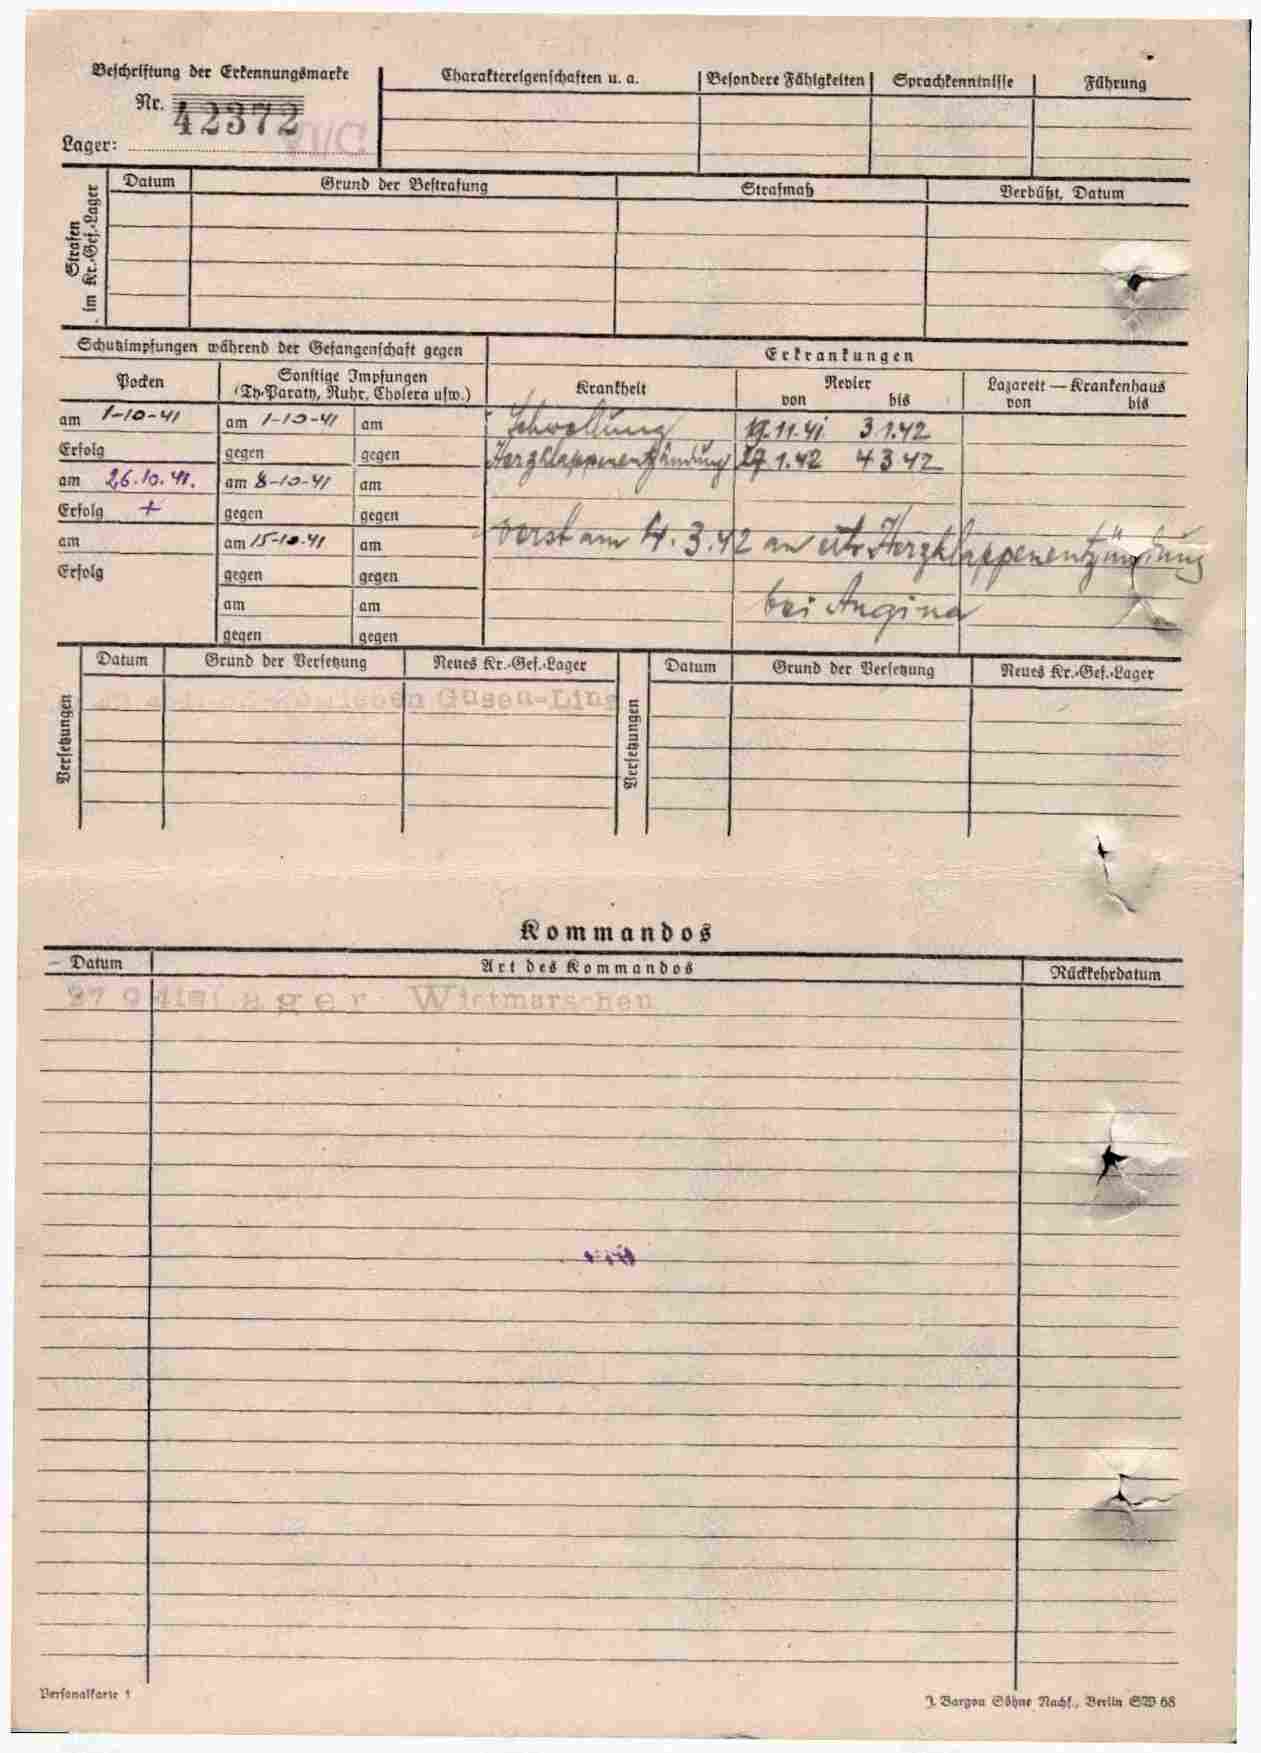 Beschriftung der Erkennungsmarke
Nr. 42372
Lager: VI/C
Charaktereigenschaften u. a.
Besondere Fähigkeiten
Sprachkenntnisse
Führung
Strafen
im Kr.-Gef.-Lager
Datum
Grund der Bestrafung
Strafmaß
Verbüßt, Datum
Schutzimpfungen während der Gefangenschaft gegen
Erkrankungen
Pocken
Sonstige Impfungen
(Ty.-Paraty, Ruhr, Cholera usw.)
Krankheit
Revier
von bis
Lazarett — Krankenhaus
von bis
am 1-10-41 am 1-10-41 am Schwellung 19.11.41 3.1.42
Erfolg gegen gegen Herzklappenentzündung 27.1.42 4 3 42
am 26.10.41. am 8-10-41 am
Erfolg + gegen gegen
am am 15-10-41 am verst am 4.3.42 an Herzklappenentzündung
Erfolg gegen gegen
am am bei Angina
gegen gegen
Versetzungen
Datum
Grund der Versetzung
Neues Kr.-Gef.-Lager
Gusen-Linz
Versetzungen
Datum
Grund der Versetzung
Neues Kr.-Gef.-Lager
Kommandos
Datum
Art des Kommandos
Rückkehrdatum
Lager Wietmarschen
Personalkarte 1
J. Bargou Söhne Nachf., Berlin SW 68